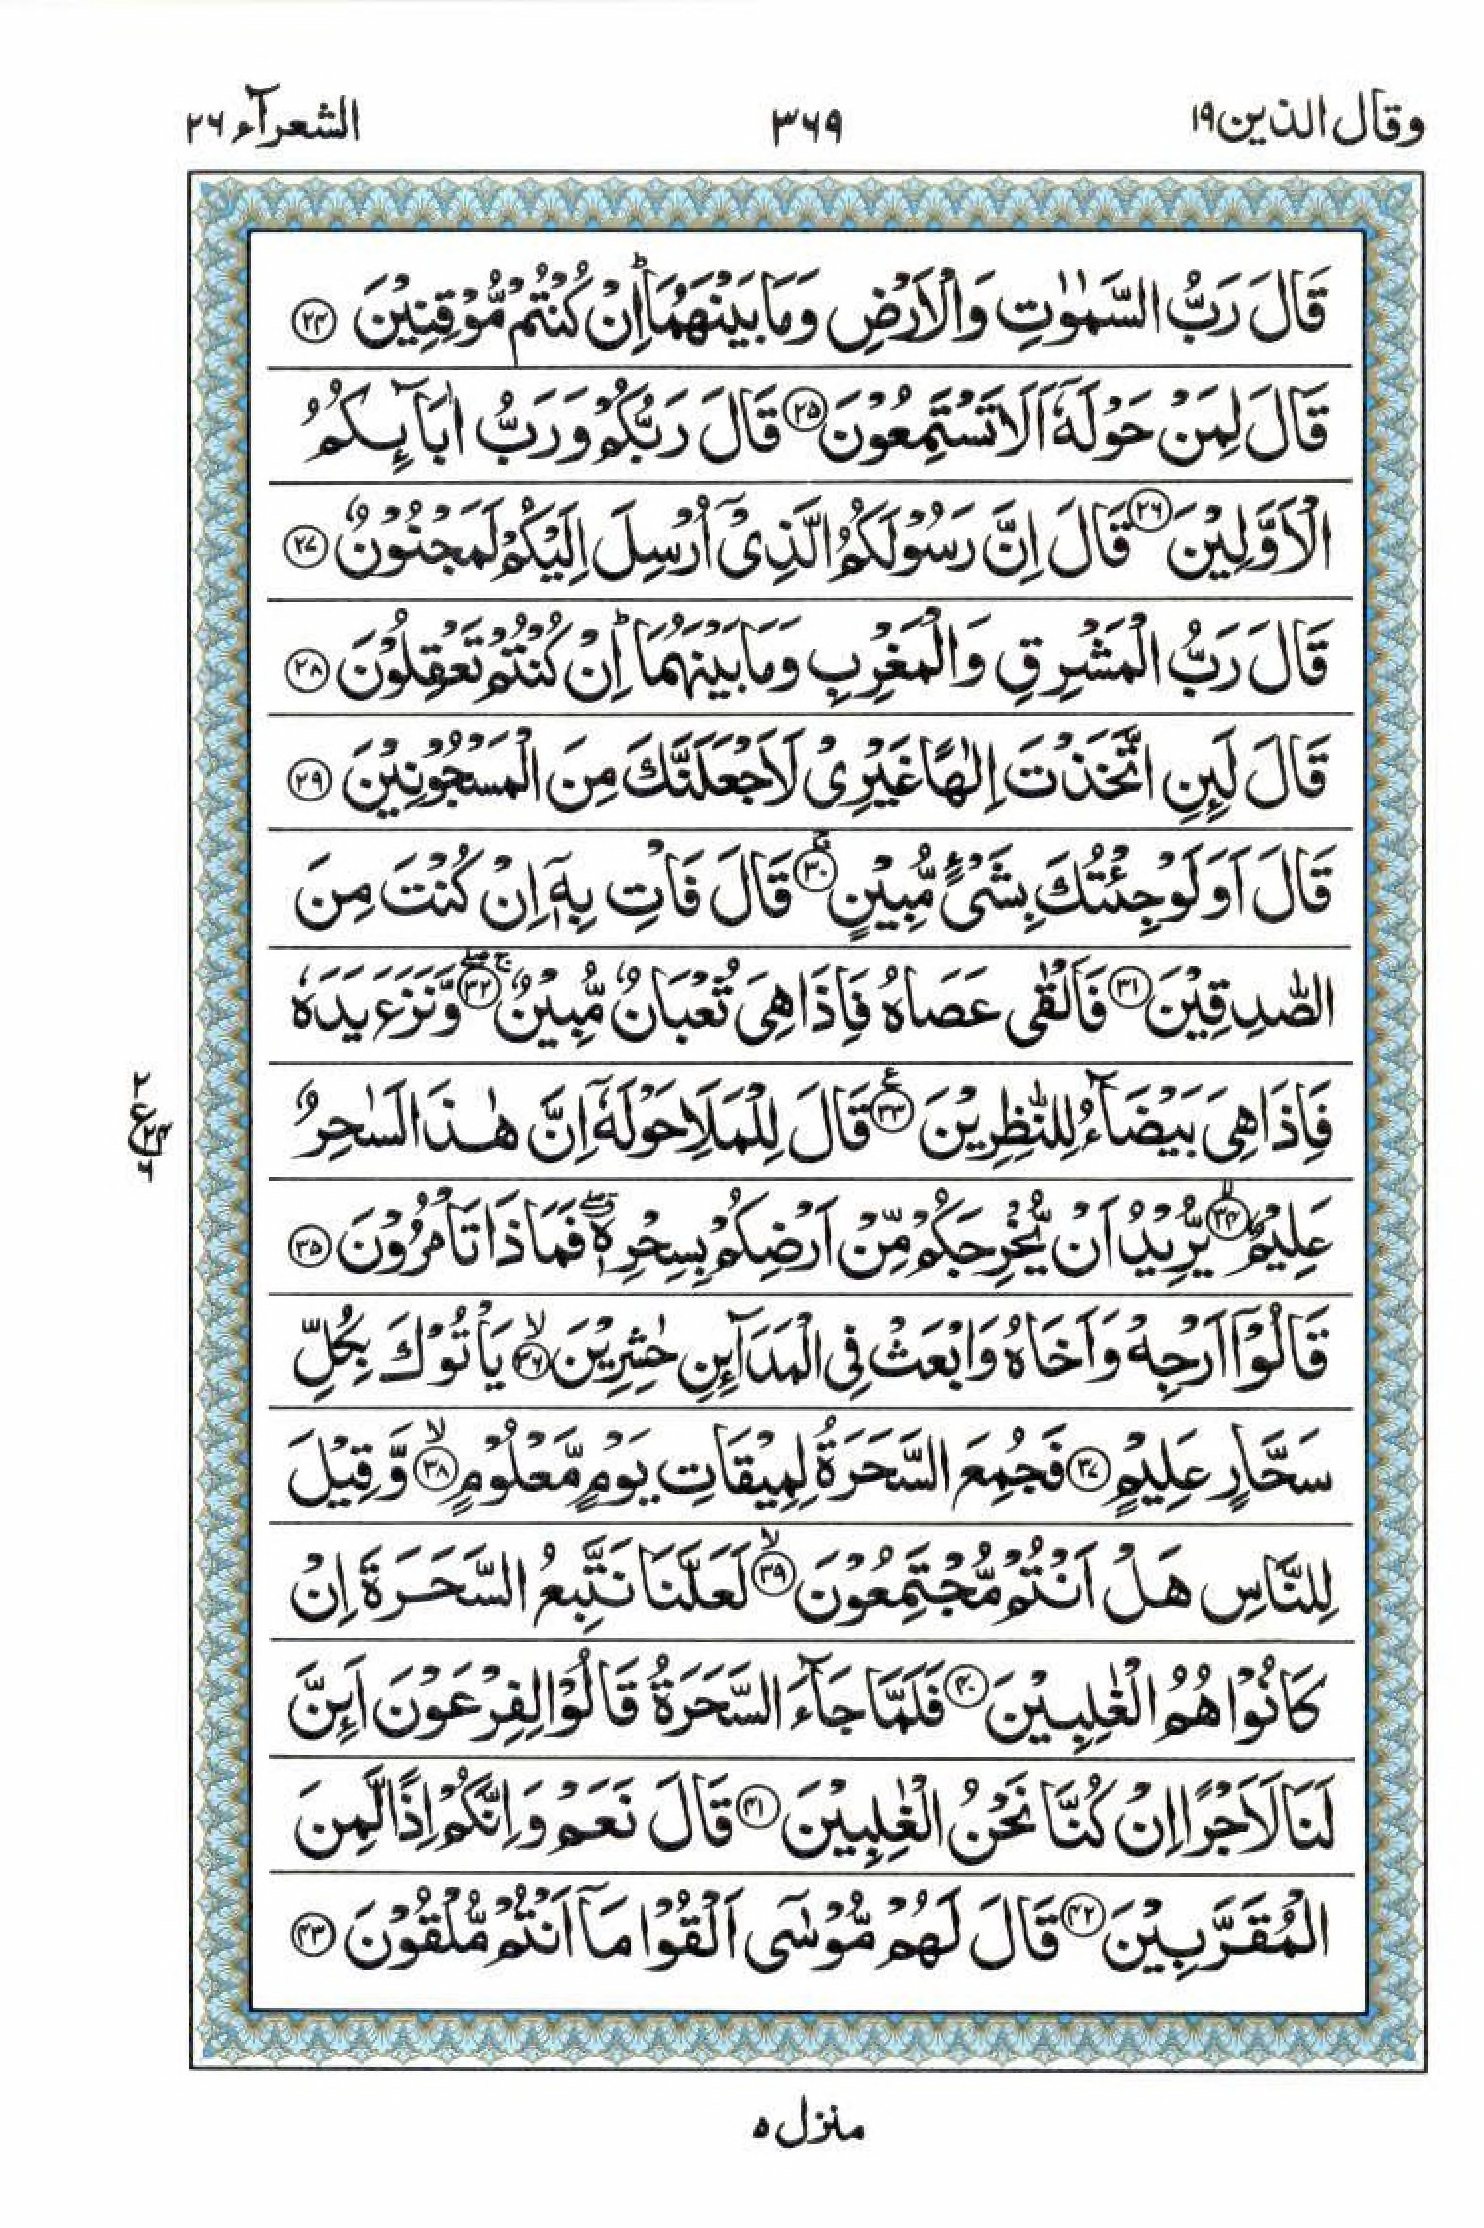 وقال الذين ١٩ ٣٦٩ الشعرآء ٢٦
قَالَ رَبُّ السَّمٰوٰتِ وَالْاَرْضِ وَمَا بَيْنَهُمَا ؕ اِنْ كُنْتُمْ مُّوْقِنِيْنَ ﴿۲۴﴾
قَالَ لِمَنْ حَوْلَهٗۤ اَلَا تَسْتَمِعُوْنَ ﴿۲۵﴾ قَالَ رَبُّكُمْ وَرَبُّ اٰبَآئِكُمُ
الْاَوَّلِيْنَ ﴿۲۶﴾ قَالَ اِنَّ رَسُوْلَكُمُ الَّذِىْۤ اُرْسِلَ اِلَيْكُمْ لَمَجْنُوْنٌ ﴿۲۷﴾
قَالَ رَبُّ الْمَشْرِقِ وَالْمَغْرِبِ وَمَا بَيْنَهُمَا ؕ اِنْ كُنْتُمْ تَعْقِلُوْنَ ﴿۲۸﴾
قَالَ لَئِنِ اتَّخَذْتَ اِلٰهًا غَيْرِىْ لَاَجْعَلَنَّكَ مِنَ الْمَسْجُوْنِيْنَ ﴿۲۹﴾
قَالَ اَوَلَوْ جِئْتُكَ بِشَىْءٍ مُّبِيْنٍ ۚ﴿۳۰﴾ قَالَ فَاْتِ بِهٖۤ اِنْ كُنْتَ مِنَ
الصّٰدِقِيْنَ ﴿۳۱﴾ فَاَلْقٰى عَصَاهُ فَاِذَا هِىَ ثُعْبَانٌ مُّبِيْنٌ ۚۖ﴿۳۲﴾ وَّنَزَعَ يَدَهٗ
فَاِذَا هِىَ بَيْضَآءُ لِلنّٰظِرِيْنَ ﴿۳۳﴾ع قَالَ لِلْمَلَاِ حَوْلَهٗۤ اِنَّ هٰذَا لَسٰحِرٌ
عَلِيْمٌ ۙ﴿۳۴﴾ يُّرِيْدُ اَنْ يُّخْرِجَكُمْ مِّنْ اَرْضِكُمْ بِسِحْرِهٖ ۖۗ فَمَاذَا تَاْمُرُوْنَ ﴿۳۵﴾
قَالُوْۤا اَرْجِهْ وَاَخَاهُ وَابْعَثْ فِى الْمَدَآئِنِ حٰشِرِيْنَ ۙ﴿۳۶﴾ يَاْتُوْكَ بِكُلِّ
سَحَّارٍ عَلِيْمٍ ﴿۳۷﴾ فَجُمِعَ السَّحَرَةُ لِمِيْقَاتِ يَوْمٍ مَّعْلُوْمٍ ۙ﴿۳۸﴾ وَّقِيْلَ
لِلنَّاسِ هَلْ اَنْتُمْ مُّجْتَمِعُوْنَ ۙ﴿۳۹﴾ لَعَلَّنَا نَتَّبِعُ السَّحَرَةَ اِنْ
كَانُوْا هُمُ الْغٰلِبِيْنَ ﴿۴۰﴾ فَلَمَّا جَآءَ السَّحَرَةُ قَالُوْا لِفِرْعَوْنَ اَئِنَّ
لَنَا لَاَجْرًا اِنْ كُنَّا نَحْنُ الْغٰلِبِيْنَ ﴿۴۱﴾ قَالَ نَعَمْ وَاِنَّكُمْ اِذًا لَّمِنَ
الْمُقَرَّبِيْنَ ﴿۴۲﴾ قَالَ لَهُمْ مُّوْسٰٓى اَلْقُوْا مَاۤ اَنْتُمْ مُّلْقُوْنَ ﴿۴۳﴾
٢
ع ٢٤
٦
منزل ٥